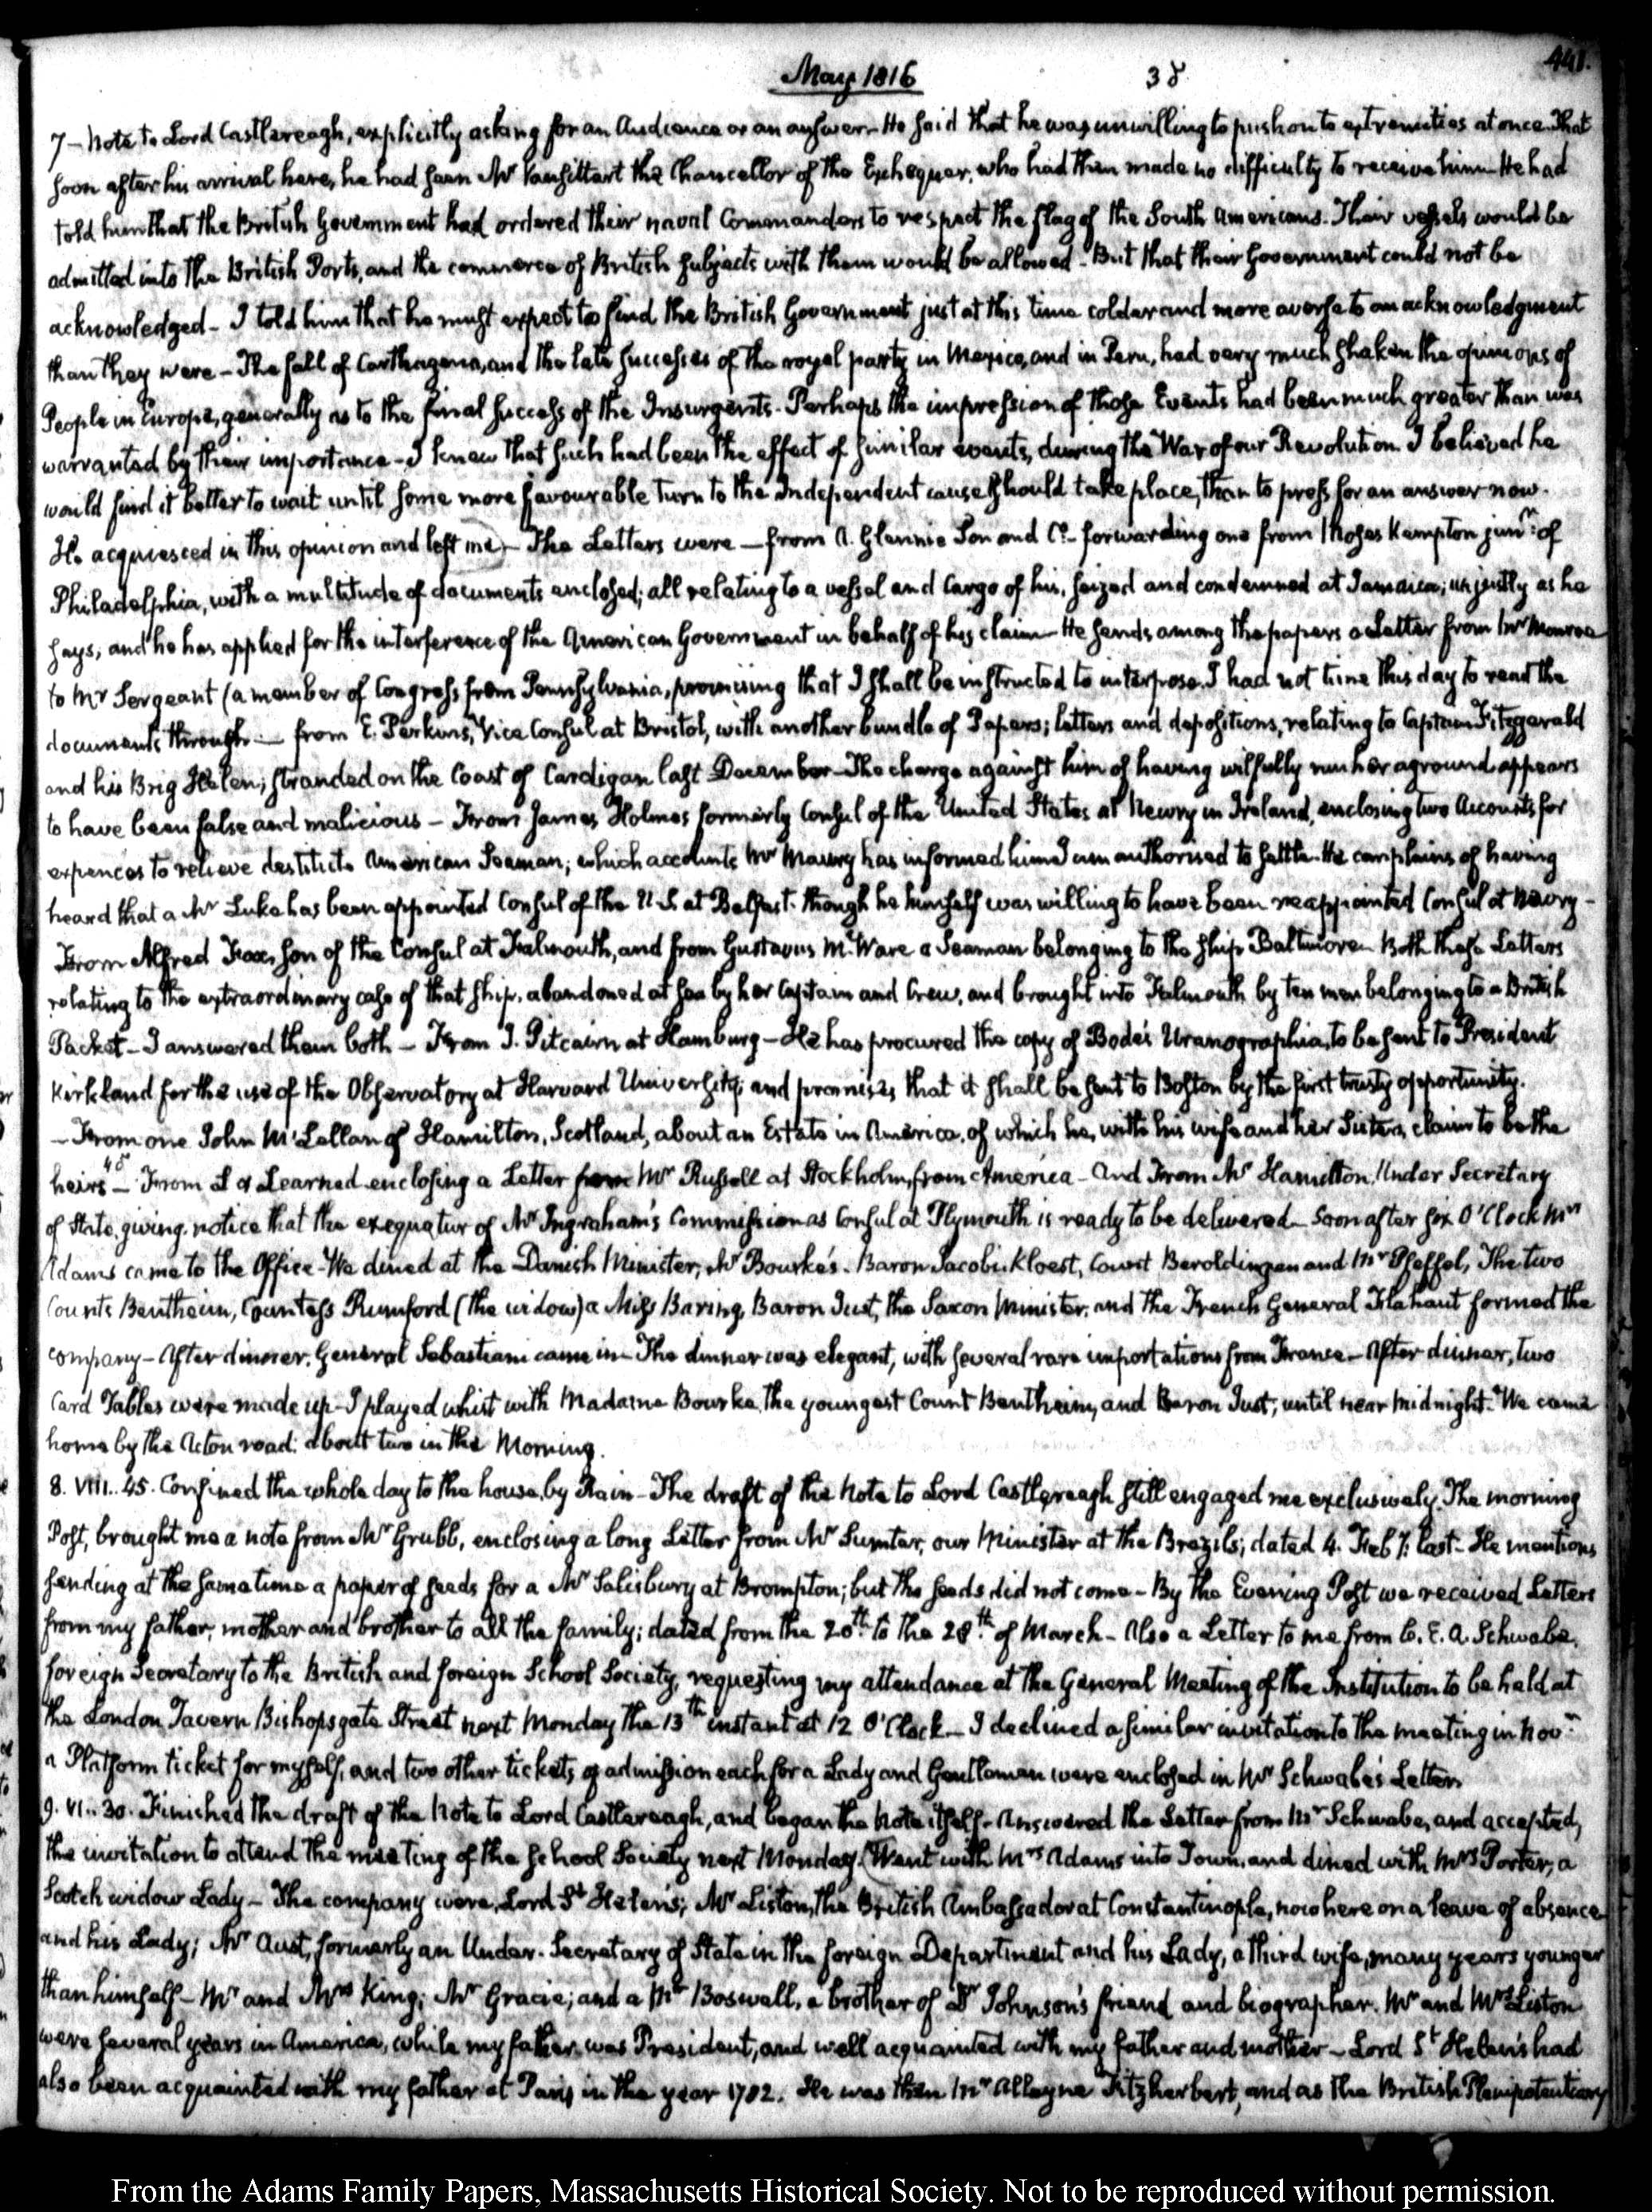 May 1816
38
441.
7 – Note to Lord Castlereagh, explicitly asking for an Audience or an answer – He said that he was unwilling to push on to extremities at once. That
soon after his arrival here, he had seen Mr Vansittart the Chancellor of the Exchequer, who had then made no difficulty to receive him – He had
told him that the British Government had ordered their naval Commanders to respect the flag of the South Americans. Their vessels would be
admitted into the British Ports, and the commerce of British subjects with them would be allowed – But that their Government could not be
acknowledged – I told him that he must expect to find the British Government just at this time colder and more averse to an acknowledgment
than they were – The fall of Carthagena, and the late successes of the royal party in Mexico, and in Peru, had very much shaken the opinions of
People in Europe, generally as to the final success of the Insurgents – Perhaps the impression of those Events had been much greater than was
warranted by their importance – I knew that such had been the effect of similar events, during the War of our Revolution. I believed he
would find it better to wait until some more favourable turn to the Independent cause should take place, than to press for an answer now.
He acquiesced in this opinion and left me – The Letters were – from A. Glennie Son and Co – forwarding one from Moses Kempton junr. of
Philadelphia, with a multitude of documents enclosed; all relating to a vessel and Cargo of his, seized and condemned at Jamaica; unjustly as he
says, and he has applied for the interference of the American Government in behalf of his claim – He sends among the papers a Letter from Mr Monroe
to Mr Sergeant (a member of Congress from Pennsylvania, promising that I shall be instructed to interpose. I had not time this day to read the
documents through – from E. Perkins, Vice Consul at Bristol, with another bundle of Papers; letters and depositions, relating to Captain Fitzgerald
and his Brig Helen; stranded on the Coast of Cardigan last December – The charge against him of having wilfully run her aground appears
to have been false and malicious – From James Holmes formerly Consul of the United States at Newry in Ireland, enclosing two Accounts for
expences to relieve destitute American Seamen; which accounts Mr Maury has informed him I am authorised to settle. He complains of having
heard that a Mr Luke has been appointed Consul of the U.S. at Belfast. though he himself was willing to have been reappointed Consul at Newry –
From Alfred Fox, son of the Consul at Falmouth, and from Gustavus M. Ware a Seaman belonging to the ship Baltimore. Both these Letters
relating to the extraordinary case of that ship, abandoned at sea by her Captain and Crew, and brought into Falmouth by ten men belonging to a British
Packet – I answered them both – From J. Pitcairn at Hamburg – He has procured the copy of Bode's Uranographia, to be sent to President
Kirkland for the use of the Observatory at Harvard University; and promises that it shall be sent to Boston by the first trusty opportunity.
– From one John McLellan of Hamilton, Scotland, about an Estate in America, of which he, with his wife and her Sisters, claim to be the
heirs – From Learned enclosing a Letter from Mr Russell at Stockholm, from America – And From Mr Hamilton, Under Secretary
of State, giving notice that the exequatur of Mr Ingraham's Commission as Consul at Plymouth is ready to be delivered – Soon after six O'Clock Mrs
Adams came to the Office – We dined at the Danish Minister, Mr Bourke's. Baron Jacobi Kloest, Count Beroldingen and Mr Pfeffel, The two
Counts Bentheim, Countess Rumford (the widow) a Miss Baring, Baron Just, the Saxon Minister, and the French General Flahaut formed the
company – After dinner, General Sebastiani came in – The dinner was elegant, with several rare importations from France – After dinner, two
Card Tables were made up – I played whist with Madame Bourke, the youngest Count Bentheim, and Baron Just; until near midnight. We came
home by the Acton road: about two in the Morning.
8. VIII..45. Confined the whole day to the house, by Rain – The draft of the Note to Lord Castlereagh still engaged me exclusively. The morning
Post, brought me a note from Mr Grubb, enclosing a long Letter from Mr Sumter, our Minister at the Brazils; dated 4. Feby. last – He mentions
sending at the same time a paper of seeds for a Mr Salisbury at Brompton; but the seeds did not come – By the Evening Post we received Letters
from my father, mother and brother to all the family; dated from the 20th. to the 28th. of March – Also a Letter to me from C. E. A. Schwabe,
foreign Secretary to the British and foreign School Society, requesting my attendance at the General Meeting of the Institution to be held at
the London Tavern Bishopsgate Street next Monday the 13th instant at 12 O'Clock – I declined a similar invitation to the meeting in Novr.
a Platform ticket for myself, and two other tickets of admission each for a Lady and Gentleman were enclosed in Mr Schwabe's Letter.
9. VI..30. Finished the draft of the Note to Lord Castlereagh, and began the Note itself – Answered the Letter from Mr Schwabe, and accepted,
the invitation to attend the meeting of the School Society next Monday. Went with Mrs Adams into Town, and dined with Mrs Porter, a
Scotch widow Lady – The company were, Lord St Helen's; Mr Liston, the British Ambassador at Constantinople, now here on a leave of absence
and his Lady; Mr Aust, formerly an Under-Secretary of State in the foreign Department and his Lady, a third wife, many years younger
than himself – Mr and Mrs King; Mr Gracie; and a Mr Boswell, a brother of Dr Johnson's friend and biographer. Mr and Mrs Liston
were several years in America, while my father was President, and well acquainted with my father and mother – Lord St Helen's had
also been acquainted with my father at Paris in the year 1782. He was then Mr Alleyne Fitzherbert, and as the British Plenipotentiary
From the Adams Family Papers, Massachusetts Historical Society. Not to be reproduced without permission.